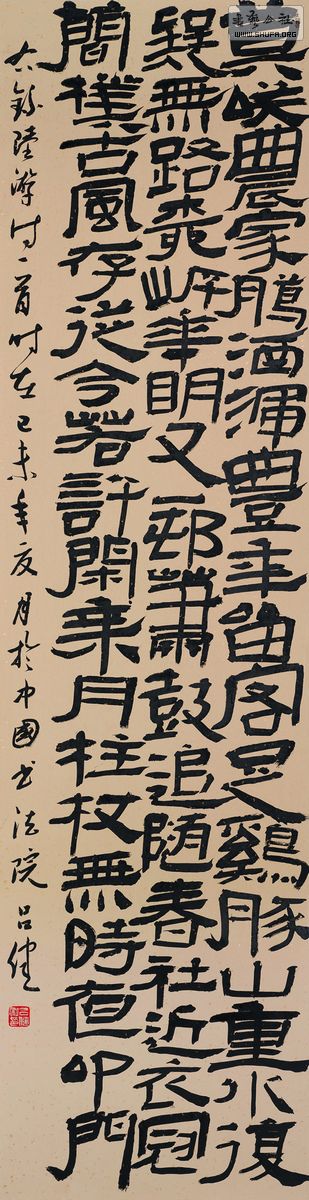 書藝公社
WWW.SHUFA.ORG
莫咲農家臈酒渾豊年留客足鷄豚山重水復
疑無路華明又一邨蕭鼓追隨春社近衣冠
簡樸古風存從今若許閑乗月柱杖無時夜叩門
右錄陸游诗一首时在己未年夏月於中國书法院吕健